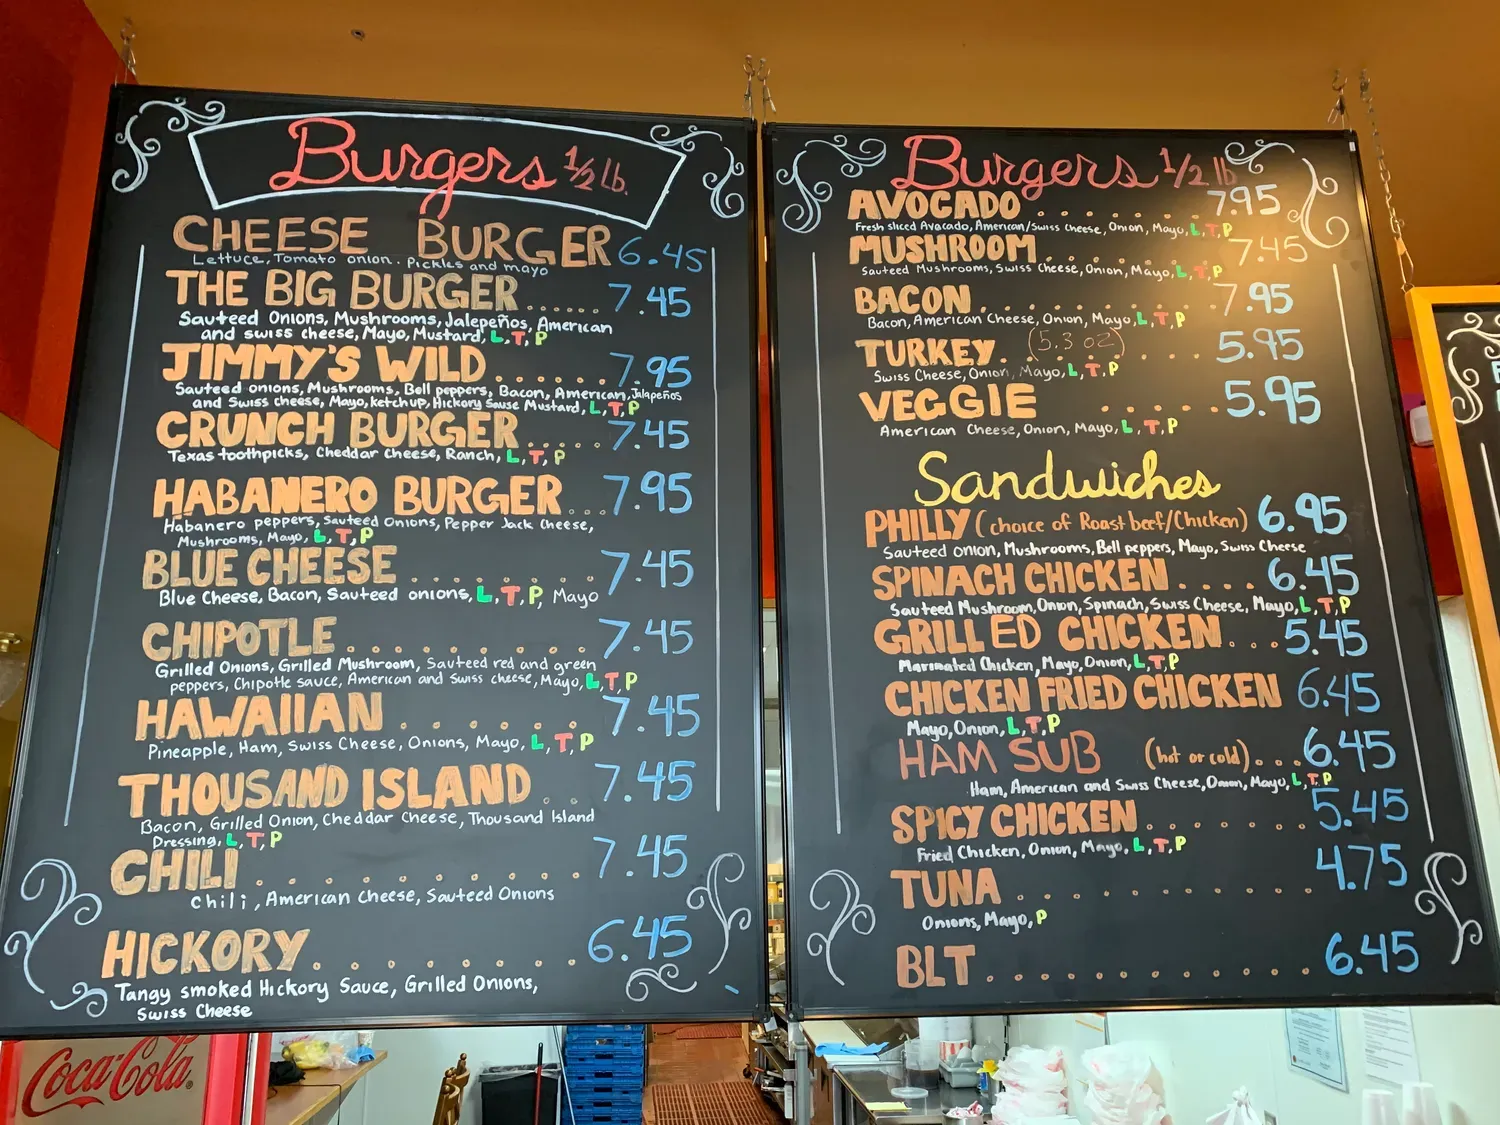 Burgers 1/2 lb.
CHEESE BURGER 6.45
Lettuce, Tomato onion. Pickles and mayo
THE BIG BURGER ...... 7.45
Sauteed Onions, Mushrooms, Jalepeños, American
and swiss cheese, Mayo, Mustard, L, T, P
JIMMY'S WILD ....... 7.95
Sauteed onions, Mushrooms, Bell peppers, Bacon, American, Jalapeños
and Swiss cheese, Mayo, ketchup, Hickory Sause Mustard, L, T, P
CRUNCH BURGER ..... 7.45
Texas toothpicks, Cheddar Cheese, Ranch, L, T, P
HABANERO BURGER ... 7.95
Habanero peppers, Sauteed Onions, Pepper Jack Cheese,
Mushrooms, Mayo, L, T, P
BLUE CHEESE ......... 7.45
Blue Cheese, Bacon, Sauteed onions, L, T, P, Mayo
CHIPOTLE .......... 7.45
Grilled Onions, Grilled Mushroom, Sauteed red and green
peppers, Chipotle sauce, American and Swiss cheese, Mayo, L, T, P
HAWAIIAN ....... 7.45
Pineapple, Ham, Swiss Cheese, Onions, Mayo, L, T, P
THOUSAND ISLAND .. 7.45
Bacon, Grilled Onion, Cheddar Cheese, Thousand Island
Dressing, L, T, P
CHILI ............ 7.45
Chili, American Cheese, Sauteed Onions
HICKORY ......... 6.45
Tangy smoked Hickory Sauce, Grilled Onions,
Swiss Cheese
Burgers 1/2 lb
AVOCADO ........ 7.95
Fresh sliced Avocado, American/Swiss Cheese, Onion, Mayo, L, T, P
MUSHROOM ........ 7.45
Sauteed Mushrooms, Swiss Cheese, Onion, Mayo, L, T, P
BACON ......... 7.95
Bacon, American Cheese, Onion, Mayo, L, T, P
TURKEY. (5.3 oz) .... 5.95
Swiss Cheese, Onion, Mayo, L, T, P
VEGGIE ..... 5.95
American Cheese, Onion, Mayo, L, T, P
Sandwiches
PHILLY (choice of Roast beef/Chicken) 6.95
Sauteed onion, Mushrooms, Bell peppers, Mayo, Swiss Cheese
SPINACH CHICKEN .... 6.45
Sauteed Mushroom, Onion, Spinach, Swiss Cheese, Mayo, L, T, P
GRILLED CHICKEN ... 5.45
Marinated Chicken, Mayo, Onion, L, T, P
CHICKEN FRIED CHICKEN 6.45
Mayo, Onion, L, T, P
HAM SUB (hot or cold) ... 6.45
Ham, American and Swiss Cheese, Onion, Mayo, L, T, P
SPICY CHICKEN ........ 5.45
Fried Chicken, Onion, Mayo, L, T, P
TUNA ............ 4.75
Onions, Mayo, P
BLT ............. 6.45
Coca-Cola